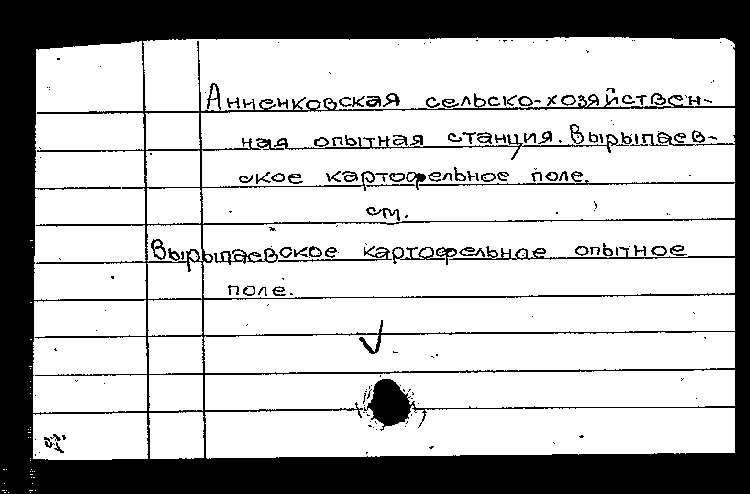 Анненковская сельско-хозяйствен-
ная опытная станция. Вырыпаев-
ское картофельное поле.
см.
Вырыпаевское картофельное опытное
поле.